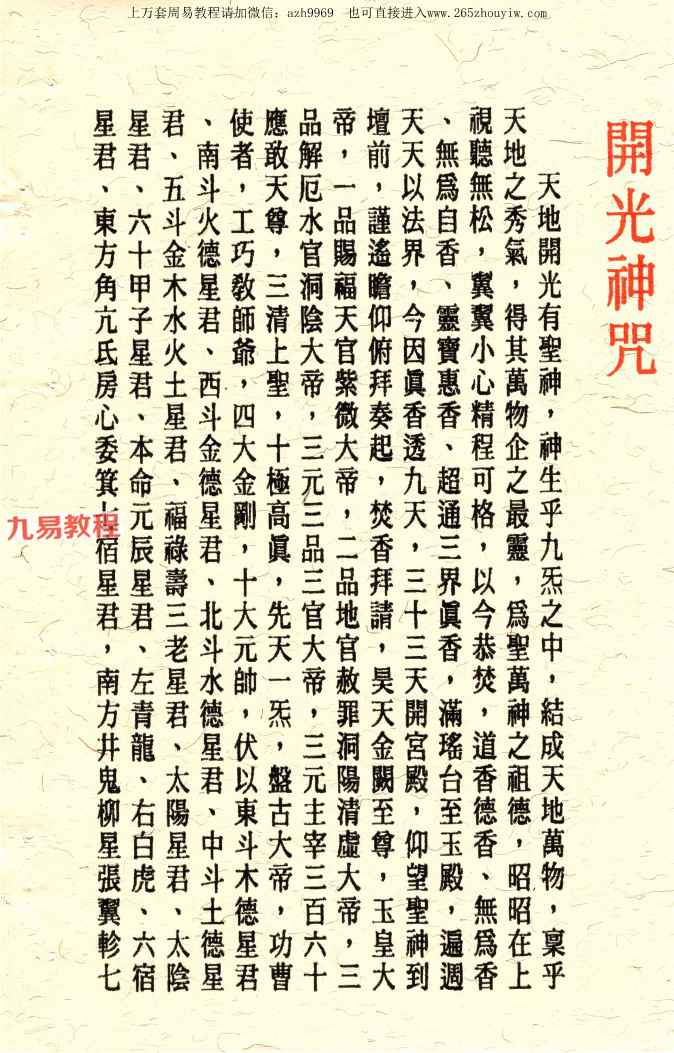 上万套周易教程请加微信：azh9969　也可直接进入www.265zhouyiw.com
開光神咒
天地開光有聖神，神生乎九炁之中，結成天地萬物，稟乎
天地之秀氣，得其萬物企之最靈，爲聖萬神之祖德，昭昭在上
視聽無松，翼翼小心精程可格，以今恭焚，道香德香、無爲香
、無爲自香、靈寶惠香、超通三界眞香，滿瑤台至玉殿，遍週
天天以法界，今因眞香透九天，三十三天開宮殿，仰望聖神到
壇前，謹遙瞻仰俯拜奏起，焚香拜請，昊天金闕至尊，玉皇大
帝，一品賜福天官紫微大帝，二品地官赦罪洞陽清虛大帝，三
品解厄水官洞陰大帝，三元三品三官大帝，三元主宰三百六十
應敢天尊，三清上聖，十極高眞，先天一炁，盤古大帝，功曹
使者，工巧敎師爺，四大金剛，十大元帥，伏以東斗木德星君
、南斗火德星君、西斗金德星君、北斗水德星君、中斗土德星
君、五斗金木水火土星君、福祿壽三老星君、太陽星君、太陰
星君、六十甲子星君、本命元辰星君、左青龍、右白虎、六宿
星君、東方角亢氐房心委箕七宿星君，南方井鬼柳星張翼軫七
九易教程